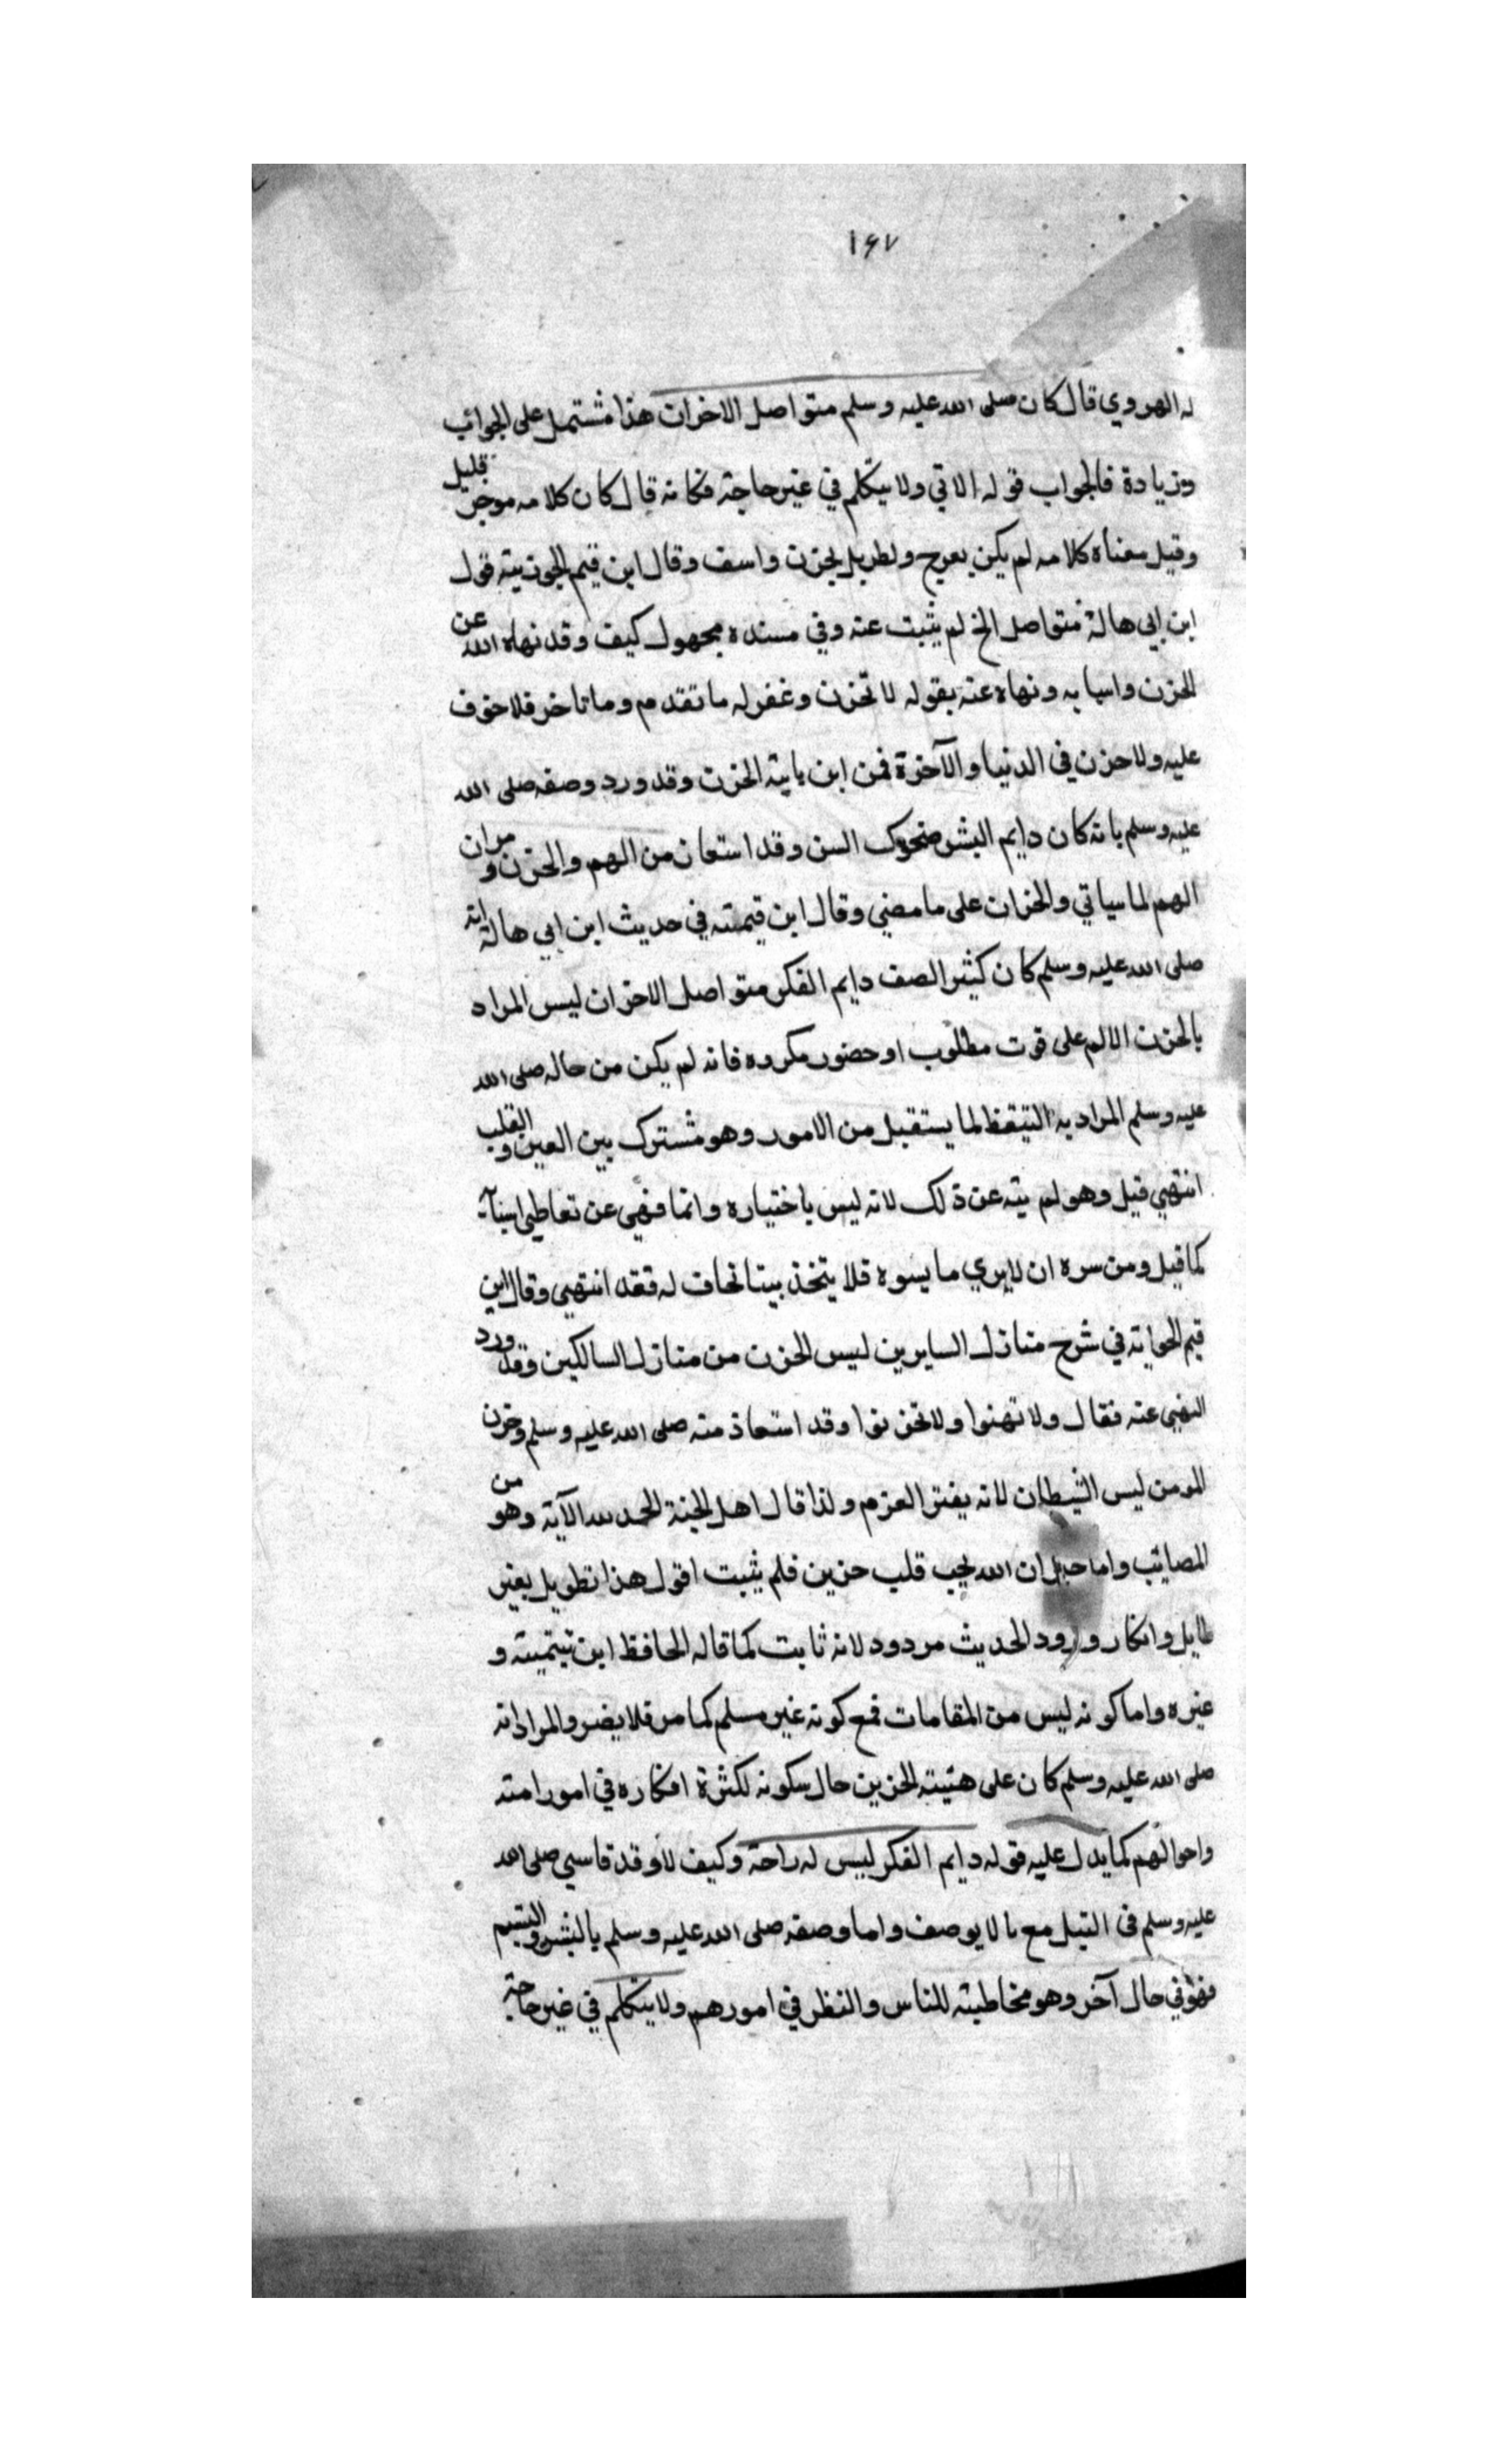 ١٤٧
له الهروي قال كان صلى الله عليه وسلم متواصل الاخران هذا مشتمل على الجوائب
وزيادة فالجواب قوله الاتي ولا يتكلم في غير حاجة فكانه قال كان كلامه موجز قليل
وقيل معناه كلامه لم يكن بفرح ولطربل لحزن واسف وقال ابن قيم الجوزيته قول
ابن ابي هالة متواصل الخ لم يثبت عنه وفي مسنده مجهول كيف وقد نهاه الله عن
الحزن واسبابه ونهاه عنه بقوله لا تحزن وغفر له ما تقدم وما تاخر فلا خوف
عليه ولا حزن في الدنيا والآخرة فمن اين ياتيه الحزن وقد ورد وصفه صلى الله
عليه وسلم بانه كان دايم البشر ضحوك السن وقد استعان من الهم والحزن ومران
الهم لما سياتي والحزان على ما مضي وقال ابن قيمته في حديث ابن ابي هالة انه
صلى الله عليه وسلم كان كثير الصف دايم الفكر متواصل الاخزان ليس المراد
بالحزن الالم على فوت مطلوب او حضور مكروه فانه لم يكن من حاله صلى الله
عليه وسلم المراد به التيقظ لما يستقبل من الامور وهو مشترك بين العين والقلب
انتهي قيل وهو لم ينه عن ذلك لانه ليس باختياره وانما نهي عن تعاطي اسبابه
كما قيل ومن سره ان لا يري ما يسوه فلا يتخذ بيتا نحاف له فقد انتهي وقال ابن
قيم الحوانه في شرح منازل السايرين ليس الحزن من منازل السالكين وقد ورد
النهي عنه فقال ولا تهنوا ولا تحزنوا وقد استعاذ منه صلى الله عليه وسلم وحزن
المومن ليس الشيطان لانه يفتر العزم ولذا قال اهل الجنة الحمد لله الآية وهو من
المصائب واما حبل ان الله يحب قلب حزين فلم يثبت اقول هذا تطويل بغير
طايل وانكار ورود الحديث مردود لانه ثابت كما قاله الحافظ ابن تيتميته و
غيره واما كونه ليس من المقامات فمع كونه غير مسلم كما مر فلا يضر والمراد انه
صلى الله عليه وسلم كان على هئيته الحزين حال سكونه لكثرة افكاره في امور امته
واحوالهم كما يدل عليه قوله دايم الفكر ليس له راحة وكيف لا وقد قاسي صلى الله
عليه وسلم في التبل مع ما لا يوصف واما وصفه صلى الله عليه وسلم بالبشر والتبسم
فهو في حال آخر وهو مخاطبته للناس والنظر في امورهم ولا يتكلم في غير حاجة